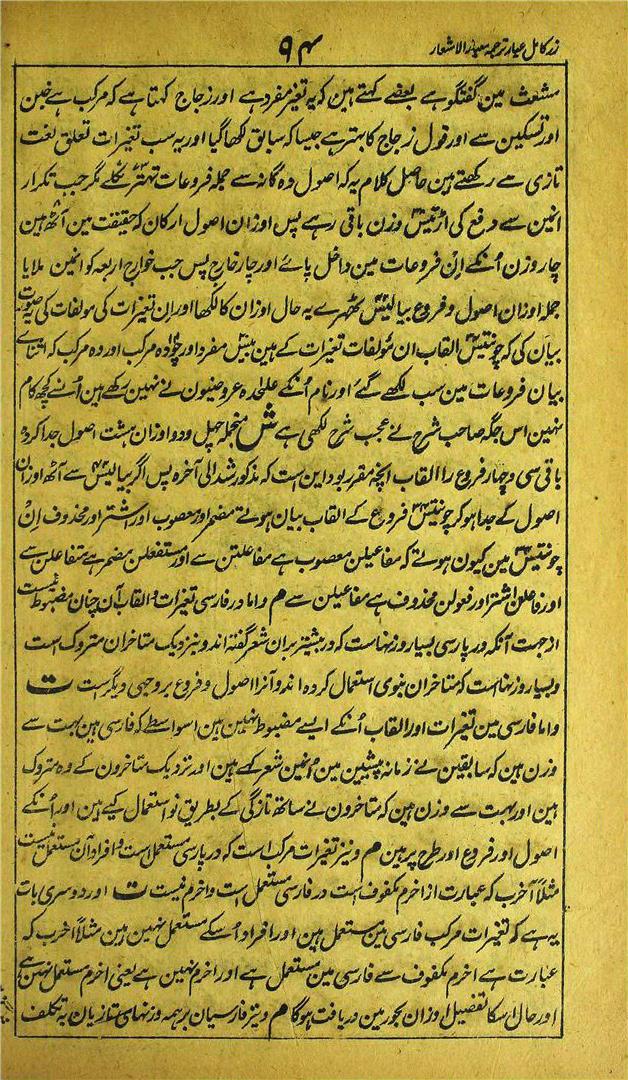 زر کامل عیار ترجمہ معیار الاشعار
۹۴
مشعث مین گفتگو ہے بعضے کہتے ہین کہ یہ تغیر مفرد ہے اور زجاج کہتا ہے کہ مرکب ہے خبن
اور تسکین سے اور قول زجاج کا بہتر ہے جیسا کہ سابق لکھا گیا اور یہ سب تغیرات تعلق لغت
تازی سے رکھتے ہین حاصل کلام یہ کہ اصول دہ گانہ سے جملہ فروعات تہتر نکلے مگر جب تکرار
انین سے رفع کی اڑتیس وزن باقی رہے پس اوزان اصول ارکان کہ حقیقت مین آٹھ ہین
چار وزن اُنکے اِن فروعات مین داخل پائے اور چار خارج پس جب خوارج اربعہ کو انین ملایا
جملہ اوزان اصول و فروع بیالیس ٹھہرے یہ حال اوزان کا لکھا اور اِن تغیرات کی مولفات کی
بیان کی کہ چونتیس القاب ان مؤلفات تغیرات کے ہین بیس مفرد اور چودہ مرکب اور وہ مرکب کہ اثنای
بیان فروعات مین سب لکھے گئے اور نام اُنکے علٰحدہ عروضیون نے نہین رکھے ہین اُنسے کچھ کام
نہین اس جگہ صاحب شرح نے عجب شرح لکھی ہے ش منجملہ چہل و دو اوزان ہشت اصول جدا کردہ
باقی سی و چہار فروع را القاب انچہ مقرر بود این است کہ مذکور شد الی آخرہ پس اگر بیالیس سے آٹھ اوزان
اصول کے جدا ہو کر چونتیس فروع کے القاب بیان ہوئے مضمر اور معصوب اور اشتر اور محذوف اِن
چونتیس مین کیون ہوئے کہ مفاعیلن معصوب ہے مفاعلتن سے اور مستفعلن مضمر ہے متفاعلن سے
اور فاعلن اشتر اور فعولن محذوف ہے مفاعیلن سے م و اما در فارسی تغیرات و القاب آن چنان مضبوط نیست
از جہت آنکہ در پارسی بسیار وزنہاست کہ در پیشتر بران شعر گفتہ اند و نزدیک متاخران متروک است
و بسیار وزنہاست کہ متاخران بنوی استعمال کردہ اند و آنرا اصول و فروع بر وجہی دیگر است ت
و اما فارسی مین تغیرات اور القاب اُنکے ایسے مضبوط نہین ہین اسواسطے کہ فارسی ہین بہت سے
وزن ہین کہ سابقین نے زمانہ پیشین مین اُنین شعر کہے ہین اور نزدیک متاخرون کے وہ متروک
ہین اور بہت سے وزن ہین کہ متاخرون نے ساتھ تازگی کے بطریق نو استعمال کیے ہین اور اُنکے
اصول اور فروع اور طرح پر ہین م و نیز تغیرات مرکب است کہ در پارسی مستعمل است و افراد آن مستعمل نیست
مثلاً اخرب کہ عبارت از اخرم مکفوف است در فارسی مستعمل است و اخرم نیست ت اور دوسری بات
یہ ہے کہ تغیرات مرکب فارسی مین مستعمل ہین اور افراد اُسکے مستعمل نہین ہین مثلاً اخرب کہ
عبارت ہے اخرم مکفوف سے فارسی مین مستعمل ہے اور اخرم نہین ہے یعنی اخرم مستعمل نہین ہے
اور حال اسکا تفصیل اوزان بحور مین دریافت ہوگا م و نیز فارسیان بر ہمہ وزنہای تازیان بہ تکلف